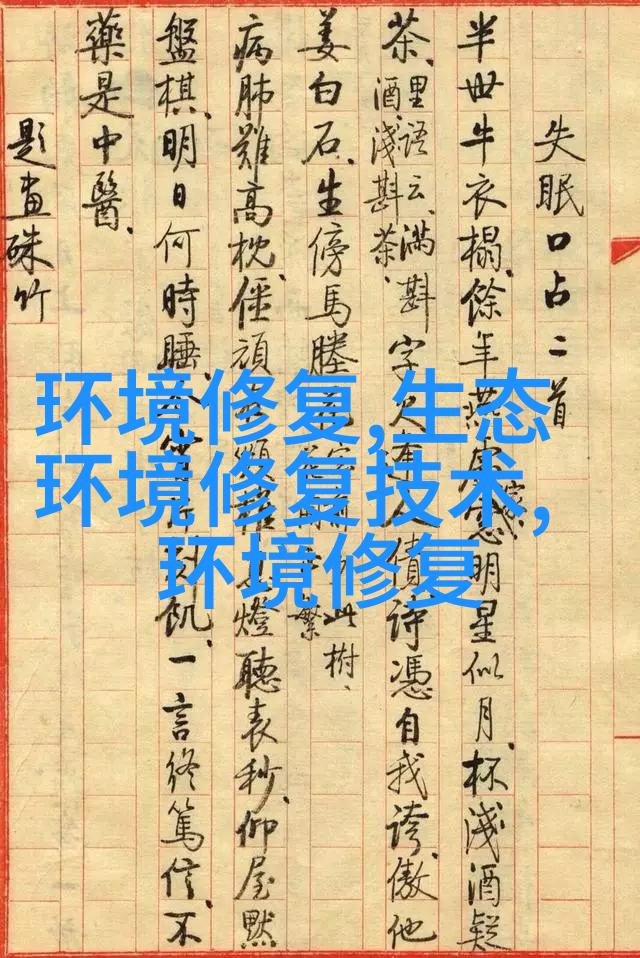 失眠口占二首
半世牛衣榻、餘年燕明星似月、杯淺酒疑
茶、里語云、滿斟酒、淺斟茶、字欠人債、詩憑自我誇、傲他
姜白石、生傍馬塍此樹、
病肺難高枕、僵頑燈聽表秒、仰屋默
盤棋、明日何時睡、飢、一言終篤信、不
藥是中醫、
題畫硃竹
环境修复,生态
环境修复技术,
环境修复